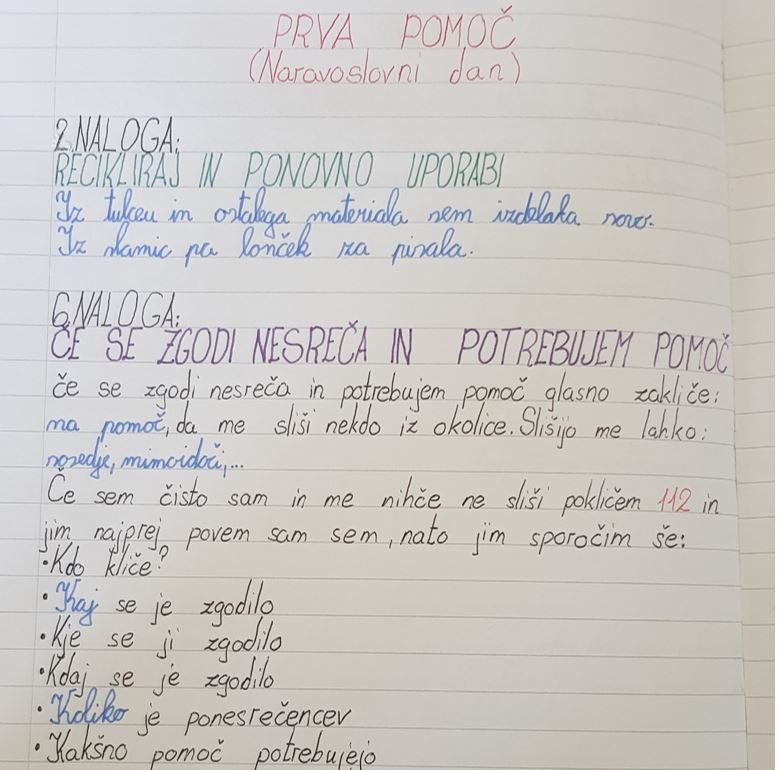 PRVA POMOČ
(Naravoslovni dan)
2.NALOGA:
RECIKLIRAJ IN PONOVNO UPORABI
Iz tulcev in ostalega materiala sem izdelala novo.
Iz slamic pa lonček za pisala.
6.NALOGA:
ČE SE ZGODI NESREČA IN POTREBUJEM POMOČ
če se zgodi nesreča in potrebujem pomoč glasno zakliče:
na pomoč, da me sliši nekdo iz okolice. Slišijo me lahko:
sosedje, mimoidoči,...
Če sem čisto sam in me nihče ne sliši pokličem 112 in
jim najprej povem sam sem, nato jim sporočim še:
•Kdo kliče?
•Kaj se je zgodilo
•Kje se ji zgodilo
•Kdaj se je zgodilo
•Koliko je ponesrečencev
•Kakšno pomoč potrebujejo